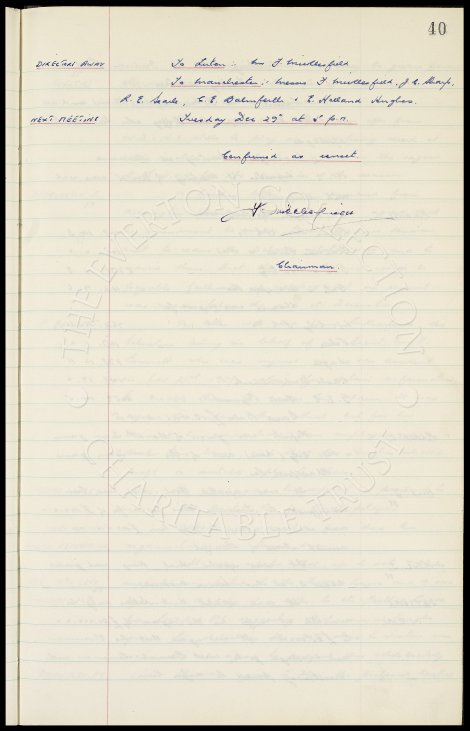 40
DIRECTORS AWAY To Luton :- Mr F Micklesfield
To Manchester :- Messrs F Micklesfield, J. C. Sharp,
R. E. Searle, C. E. Balmforth & E. Holland Hughes.
NEXT MEETING Tuesday Dec 29th at 5 p.m.
Confirmed as correct.
F. Micklesfield
Chairman.
© THE EVERTON COLLECTION
CHARITABLE TRUST ©